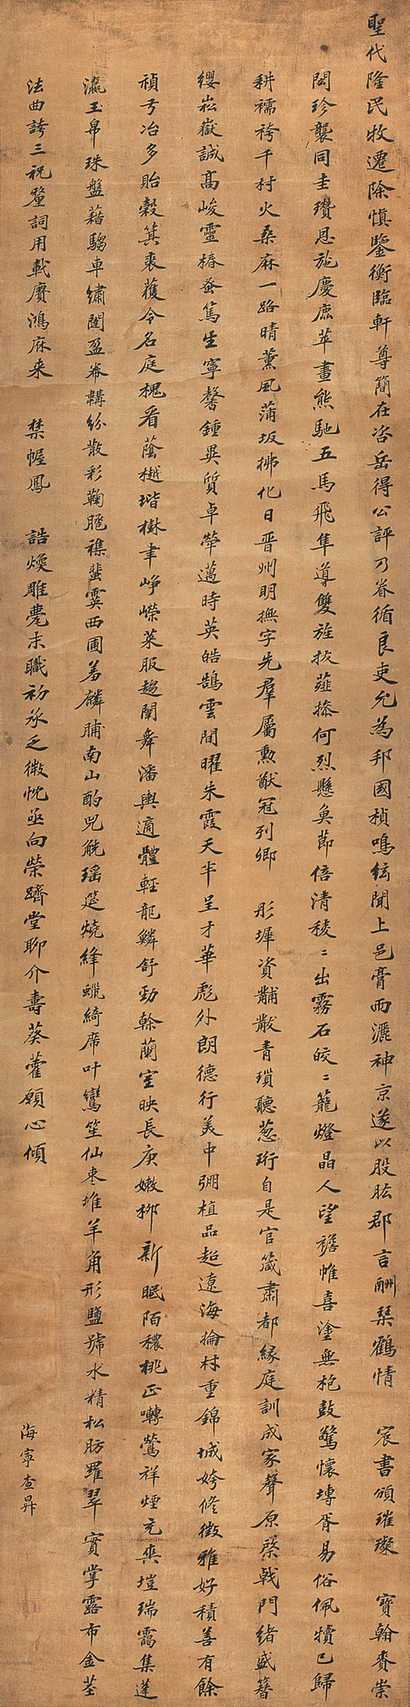 聖代隆民牧遷除慎鑒衡臨軒尊簡在咨岳得公評乃眷循良吏允為邦國楨鳴絃聞上邑膏雨灑神京遂以股肱郡言酬琴鶴情 宸書頒璀璨 寶翰賚崇
閎珍襲同圭瓚恩施慶鹿苹畫熊馳五馬飛隼導雙旌拔薤操何烈懸魚節倍清稜〻出霧石皎〻籠燈晶人望襜帷喜塗無枹鼓驚懷磚胥易俗佩犢已歸
耕襦袴千村火桑麻一路晴薰風蒲坂拂化日晉州明撫字先羣屬勲猷冠列卿 彤墀資黼黻青瑣聽蔥珩自是官箴肅都緣庭訓成家聲原棨戟門緒盛簪
纓崧嶽誠高峻靈椿蚤篤生寧馨鍾異質卓犖邁時英皓鵠雲間曜朱霞天半呈才華彪外朗德行美中弸植品超遠海掄材重錦城姱修徵雅好積善有餘
禎弓冶多貽穀箕裘復令名庭槐看蔭樾堦樹聿崢嶸萊服趨闌舞潘輿適體輕龍鱗舒勁榦蘭室映長庚嫩柳新眠陌穠桃正囀鶯祥煙充奐塏瑞靄集蓬
瀛玉帛珠盤藉騶車繡闥盈卷韝紛散彩鞠跽襍蜚霙西圃羞麟脯南山酌兕觥瑤筵燒絳蠟綺席叶鸞笙仙棗堆羊角形鹽號水精松肪羅翠實掌露布金莖
法曲誇三祝釐詞用載賡鴻庥来 禁幄鳳 誥煥雕甍末職初承乏微忱亟向榮躋堂聊介壽葵藿願心傾
海寧查昇